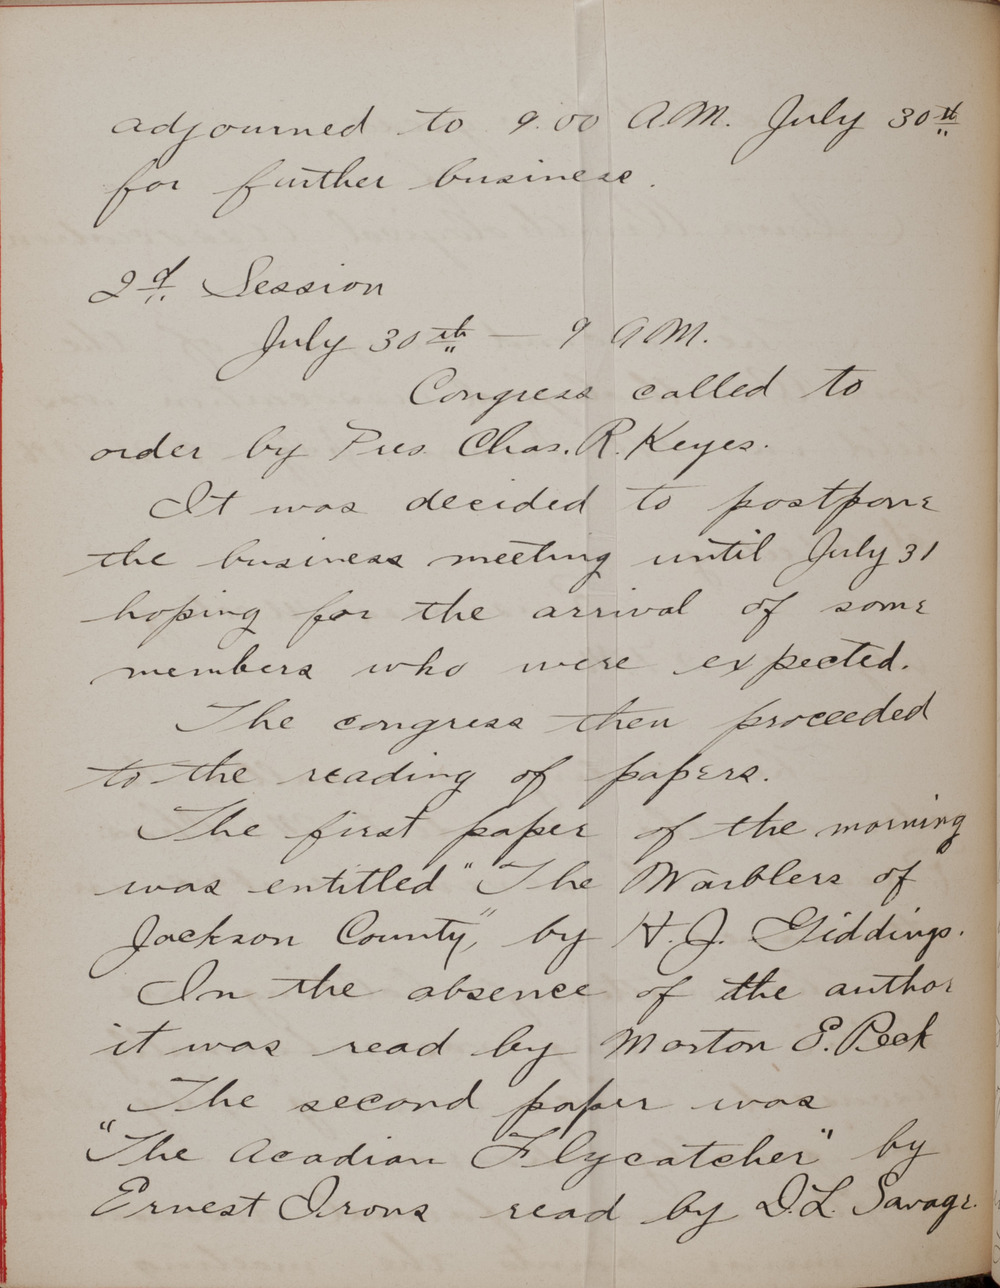 adjourned to 9.00 A.M. July 30th
for further business.
2d Session
July 30th — 9 AM.
Congress called to
order by Pres. Chas. R. Keyes.
It was decided to postpone
the business meeting until July 31
hoping for the arrival of some
members who were expected.
The congress then proceeded
to the reading of papers.
The first paper of the morning
was entitled "The Warblers of
Jackson County", by H. J. Giddings.
In the absence of the author
it was read by Morton E. Peck
The second paper was
"The Acadian Flycatcher" by
Ernest Irons read by D. L. Savage.